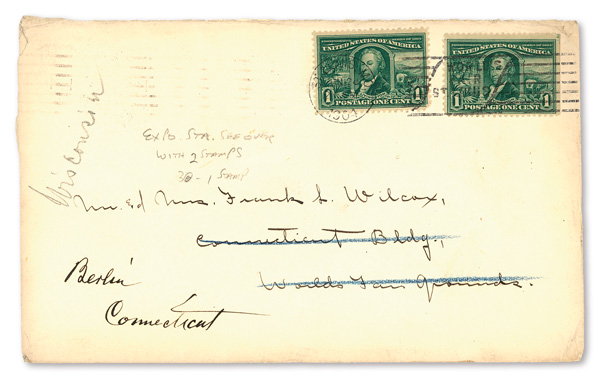 UNITED STATES OF AMERICA
1 1
POSTAGE ONE CENT
UNITED STATES OF AMERICA
1 1
POSTAGE ONE CENT
Wisconsin
EXPO STA. SEE OVER
WITH 2 STAMPS
30- 1 STAMP
Mr. & Mrs. Frank L. Wilcox,
Connecticut Bldg.,
Worlds Fair Grounds.
Berlin
Connecticut